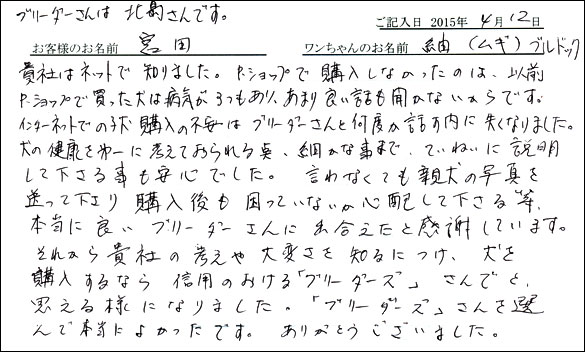 ブリーダーさんは 北島さんです。
ご記入日 2015年 4月12日
お客様のお名前 宮田 ワンちゃんのお名前 紬(ムギ)ブルドック
貴社はネットで知りました。P.ショップで購入しなかったのは、以前
P.ショップで買った犬は病気が3つもあり、あまり良い話も聞かないからです。
インターネットでの子犬購入の不安はブリーダーさんと何度か話す内に失くなりました。
犬の健康を第一に考えておられる点、細かな事まで、ていねいに説明
して下さる事も安心でした。 言わなくても親犬の写真を
送って下さり 購入後も困っていないか心配して下さる等、
本当に良いブリーダーさんに出合えたと感謝しています。
それから貴社の考えや大変さを知るにつけ、犬を
購入するなら信用のおける「ブリーダーズ」さんでと、
思える様になりました。「ブリーダーズ」さんを選
んで本当によかったです。 ありがとうございました。